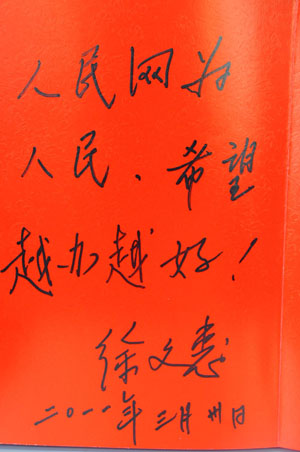 人民网为
人民、希望
越办越好！
徐文惠
二〇一一年三月卅日